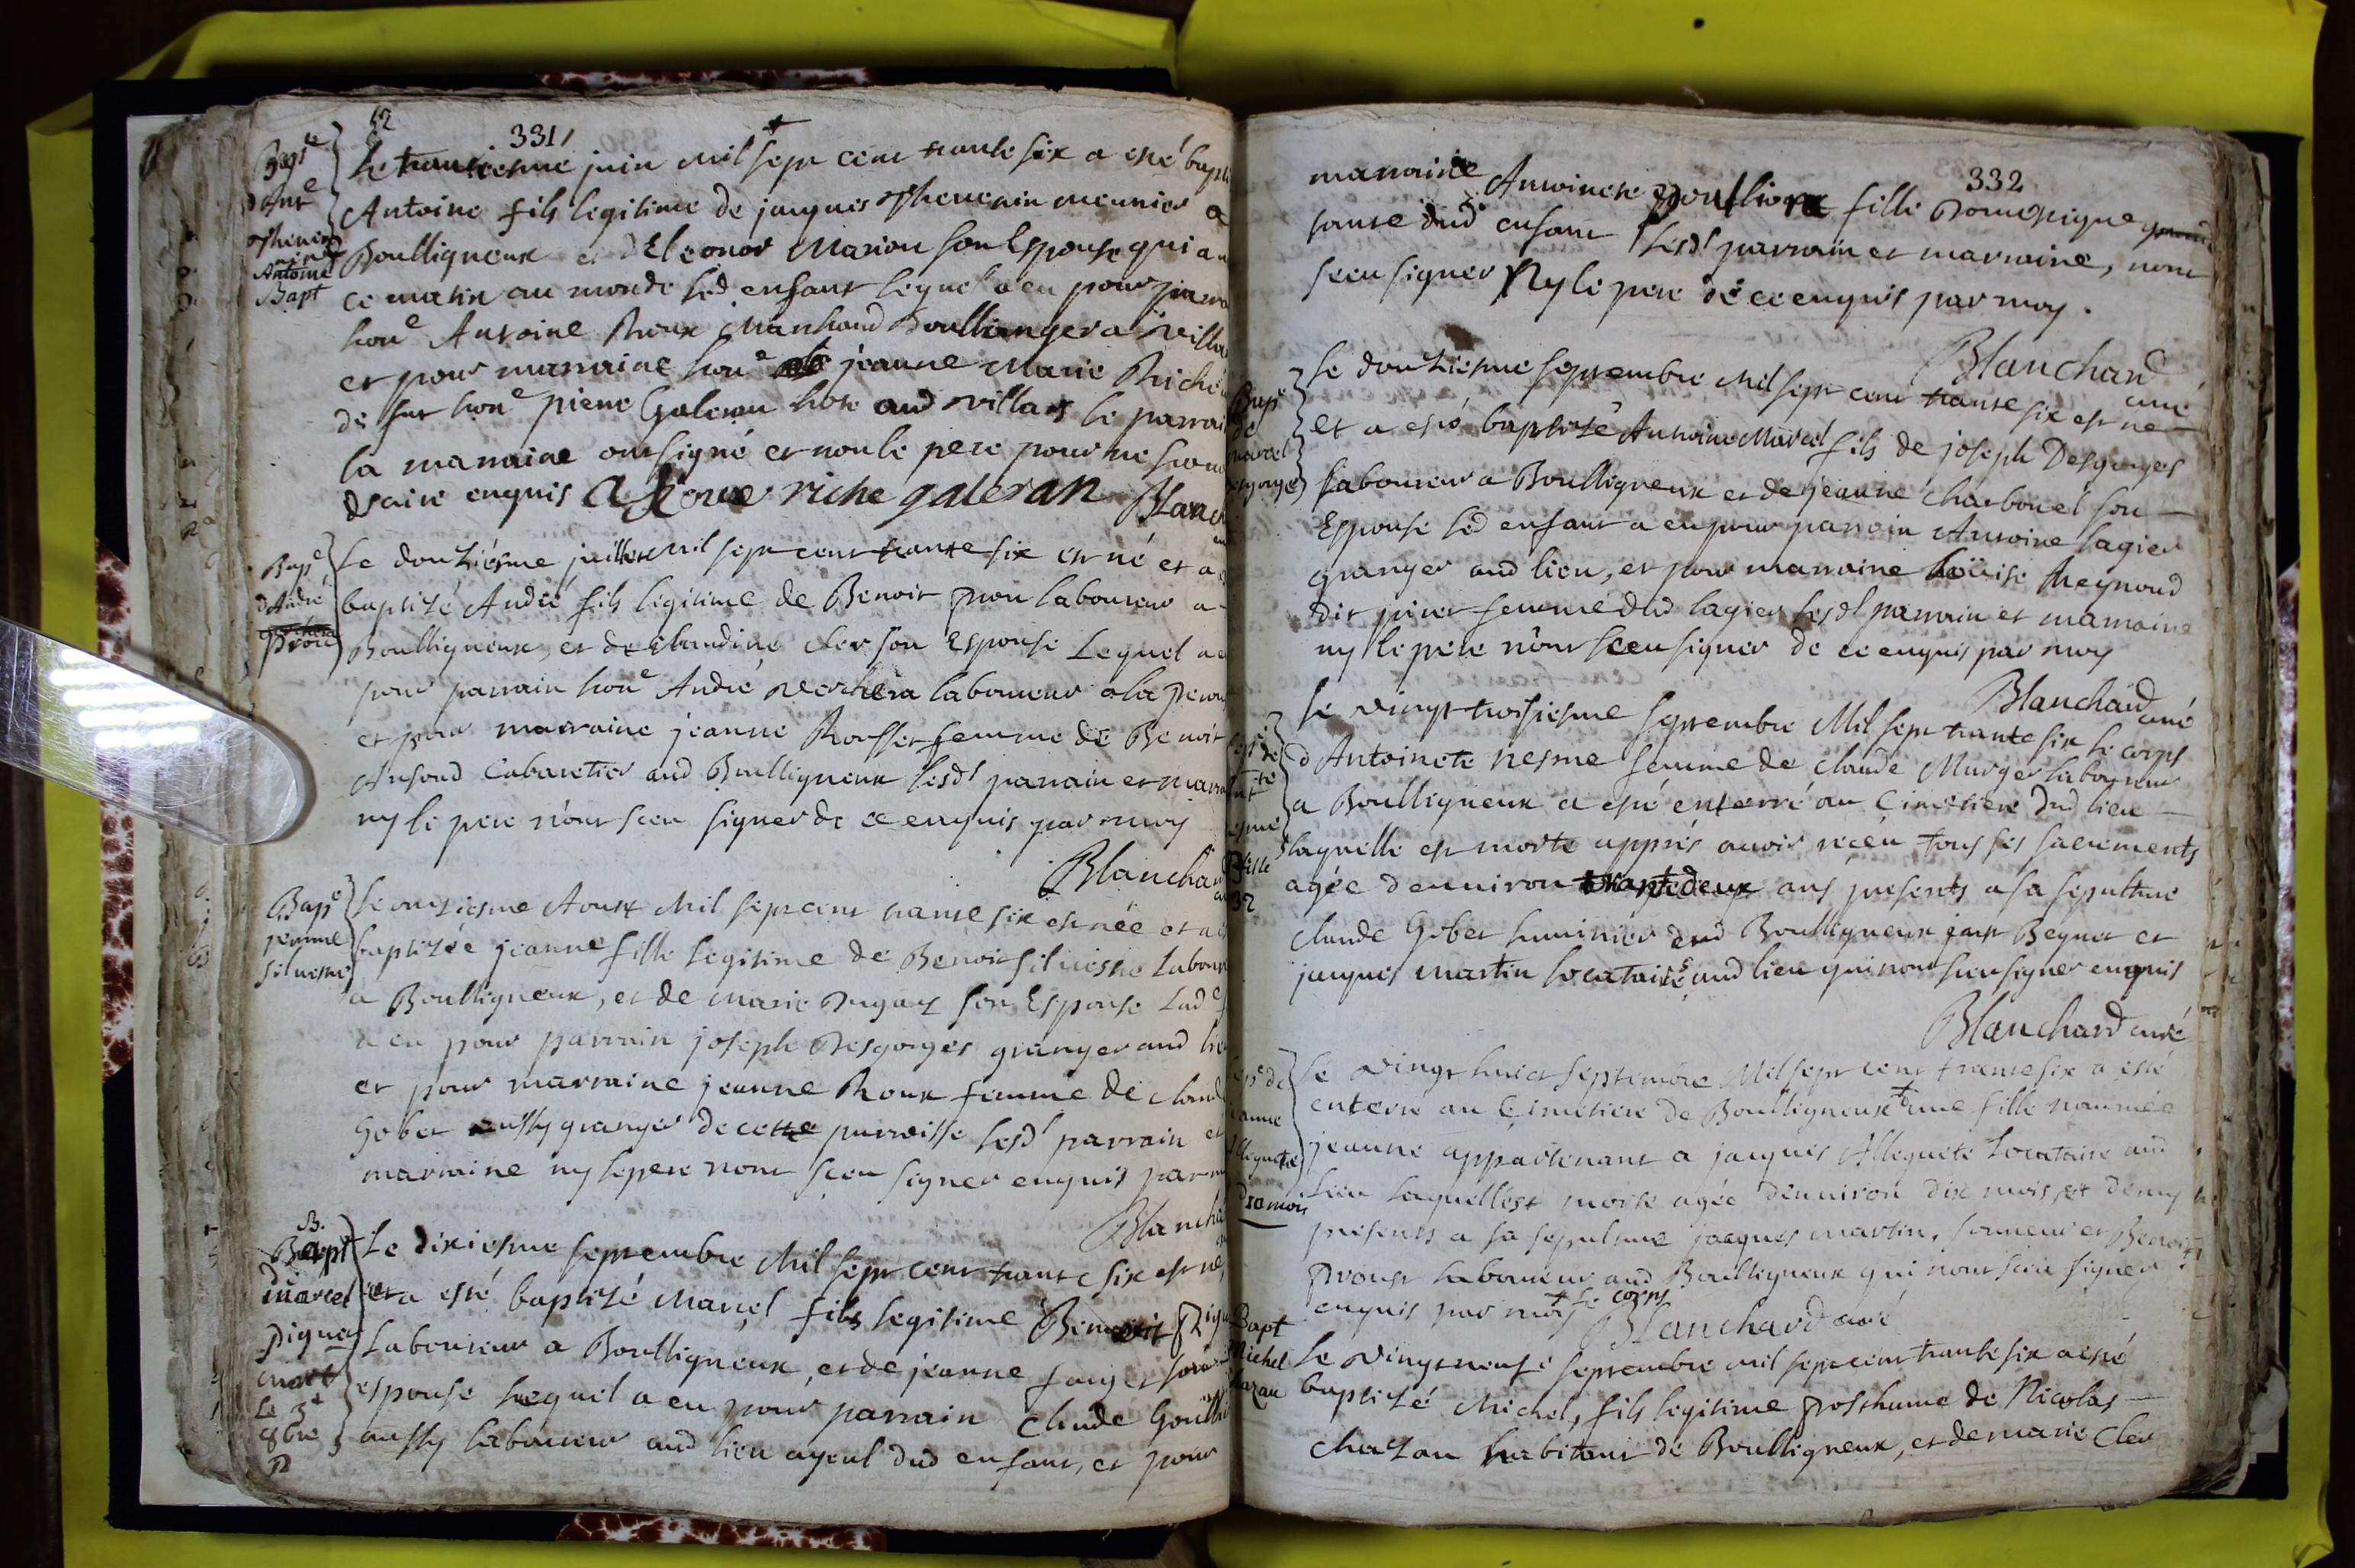 331
Le trantiesme juin mil sept cent trante six a esté bapti
Antoine fils legitime de jacques Thevenin meunier a
Boulligneux et d Eleonor Marion son Espouse qui a
ce matin au monde led enfant lequel a eu pour parra
hone Antoine Roux Marchand Boullanger a villa
et pour marraine hone jeanne Marie Riche
de fut hone pierre Galeran hote aud villars le parrai
la marraine ont signé et non le pere pour ne
de ce enquis A Roux riche galeran Blanch
Bape d'André Proin
Le douziésme juillet mil sept cent trante six est né et a
baptizé André fils legitime de Benoit proin laboureur a
Boulligneux, et de Claudine Cler son Espouse Lequel a
pour parrain hone André laboureur a la
et pour marraine jeanne Rousset femme de Benoit
Cabaretier aud Boulligneux lesdt parrain et marra
ny le pere n'ont sceu signer de ce enquis par moy
Blanchar
Bape jeanne silvestre
Le onziesme Aoust Mil sept cent trante six est née et a
baptizée jeanne fille legitime de Benoit silvestre labour
a Boulligneux, et de Marie Dugas son Espouse Lade
a eu pour parrain joseph Desgorges granger aud lie
et pour marraine jeanne Roux femme de Claud
Gobet aussy granger de cette parroisse lesdt parrain et
marraine ny le pere nont sceu signer enquis par m
Blancha
Bapt Marcel
Le dixiesme septembre Mil sept cent trante six est né
et a esté baptisé Marcel fils legitime Benoit
Laboureur a Boulligneux, et de jeanne
espouse Lequel a eu pour parrain Claude
aussy laboureur aud lieu ayeul dud enfant, et pour
mort Le 3e 8bre
332
marraine Antoinete fille Domestique
tante dud enfant lesdt parrain et marraine, nont
sceu signer Ny le pere de ce enquis par moy.
Blanchard curé
Le douziesme septembre Mil sept cent trante six est né
et a esté baptisé Antoine Marcel fils de joseph Desgorges
laboureur a Boulligneux et de jeanne Charbonel son
Espouse led enfant a eu pour parrain Antoine lagier
granger aud lieu, et pour marraine Loüise
dit femme dud lagier lesdt parrain et marraine
ny le pere n'ont sceu signer de ce enquis par moy
Blanchard curé
Le vingt troisiesme septembre Mil sept trante six le corps
d Antoinete nesme femme de Claude Murger laboureur
a Boulligneux a esté enterré au Cimetiere dud lieu
laquelle est morte apprés avoir receu tous ses sacrements
agée d'environ trante deux ans presents a sa sepulture
Claude Gobet luminier dud Boulligneux et
jacques Martin locataire aud lieu qui nont sceu signer enquis
Blanchard curé
Le vingt huict septembre Mil sept cent trante six a esté
enterré au Cimetiere de Boulligneux + d'une fille nommée
jeanne appartenant a jacques Alleguete Locataire aud
Lieu laquelle est morte agée d'environ dix mois et demy
presents a sa sepulture jacques Martin, sonneur et Benoit
Proust laboureur aud Boulligneux qui nont sceu signer
enquis par moy + Le corps
Blanchard curé
Bapt Michel
Le vingt neufe septembre mil sept cent trante six a esté
baptizé Michel, fils legitime posthume de Nicolas
Chazau habitant de Boulligneux, et de marie Cler